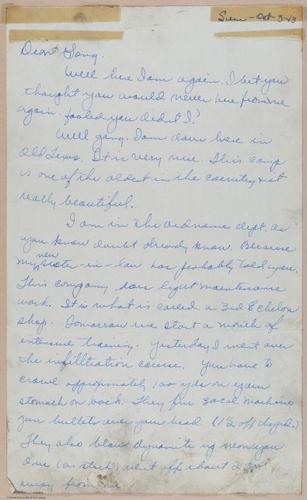 Sun - Oct 3-43
Dear Gang.
Well here I am again. I bet you
thought you would never hear from me
again. fooled you didn't I?
Well gang. I am down here in
Old Texas. It is very nice. This camp
is one of the oldest in the country & it
really beautiful.
I am in the ordnance dept. as
you know doubt already know. Because
my new sister-in-law has probably told you.
This company does light maintenance
work. It is what is called a 3rd Echelon
shop. Tomorrow we start a month of
intensive training. yesterday I went over
the infilltration course. You have to
crawl approximately 100 yds on your
stomach or back. They fire 30 cal machine
gun bullets over your head.
They also blow dynamite up near you
One (20 stick) went off about 2
away from me.